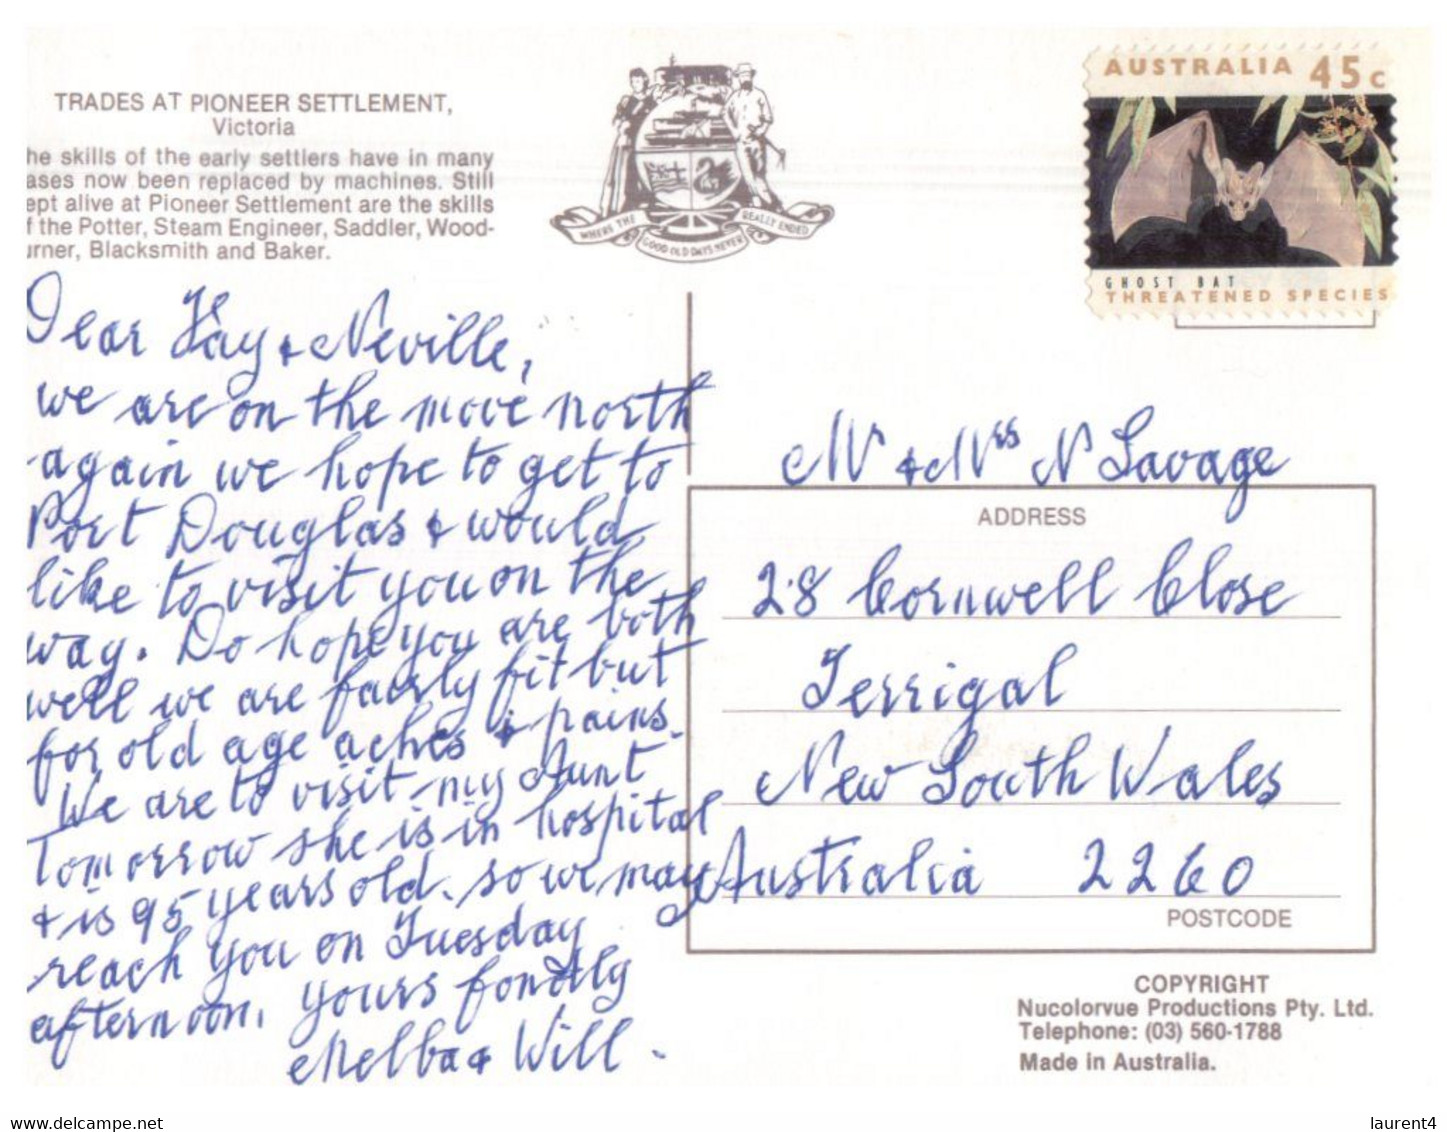 TRADES AT PIONEER SETTLEMENT,
Victoria
he skills of the early settlers have in many
ases now been replaced by machines. Still
ept alive at Pioneer Settlement are the skills
f the Potter, Steam Engineer, Saddler, Wood-
urner, Blacksmith and Baker.
WHERE THE GOOD OLD DAYS NEVER REALLY ENDED
AUSTRALIA 45c
GHOST BAT
THREATENED SPECIES
Dear Kay & Neville,
we are on the move north
again we hope to get to
Port Douglas & would
like to visit you on the
way. Do hope you are both
well we are fairly fit but
for old age aches & pains.
We are to visit my Aunt
Tomorrow she is in hospital
& is 95 years old. so we may
reach you on Tuesday
afternoon. yours fondly
Melba & Will.
Mr & Mrs N Savage
ADDRESS
28 Cornwell Close
Terrigal
New South Wales
Australia 2260
POSTCODE
COPYRIGHT
Nucolorvue Productions Pty. Ltd.
Telephone: (03) 560-1788
Made in Australia.
www.delcampe.net
laurent4